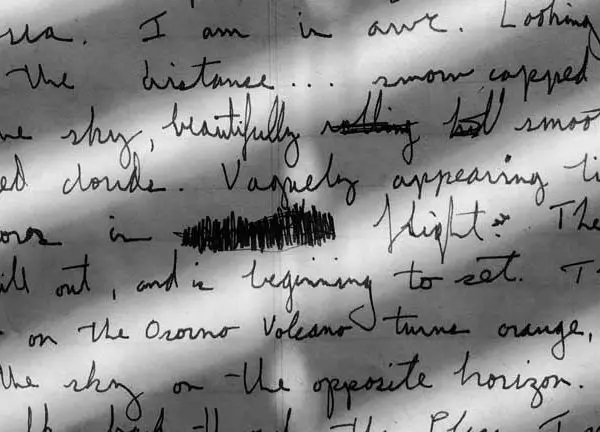 sea. I am in awe. Looking
the distance... snow capped
sky, beautifully rolling but smoo
ed clouds. Vaguely appearing li
ors in flight. The
ill out, and is beginning to set. T
on the Osorno Volcano turns orange,
the sky on the opposite horizon.
the